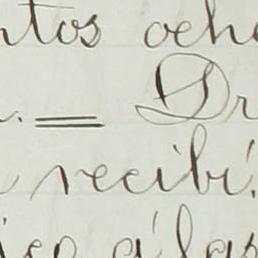 ntos oche
. = Dr
recibí
iso á las